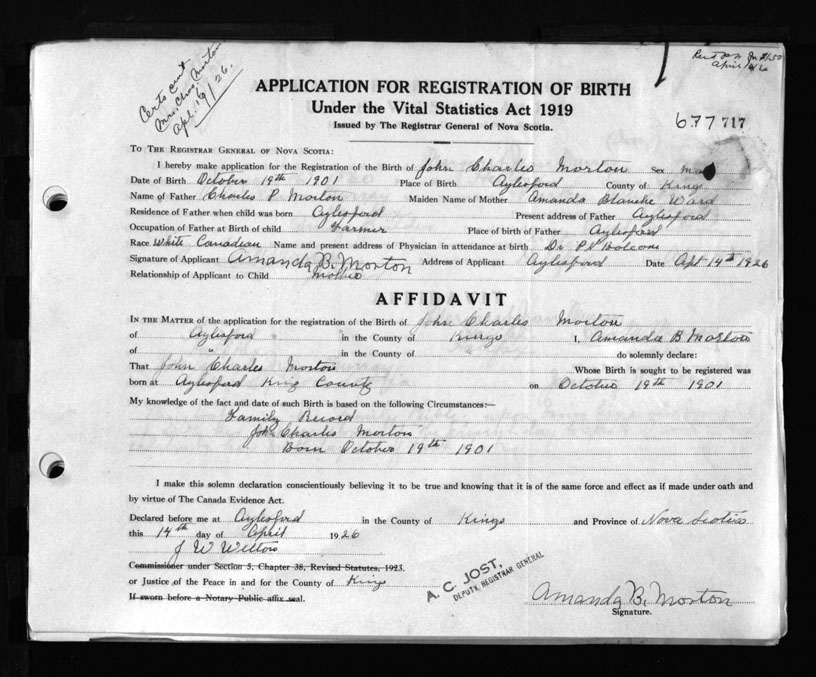 Cert sent
Mrs. Chas. Morton
Apl. 16/26.
April
APPLICATION FOR REGISTRATION OF BIRTH
Under the Vital Statistics Act 1919
Issued by The Registrar General of Nova Scotia.
677717
TO THE REGISTRAR GENERAL OF NOVA SCOTIA:
I hereby make application for the Registration of the Birth of John Charles Morton Sex
Date of Birth October 19th 1901 Place of Birth Aylesford County of Kings
Name of Father Charles P. Morton Maiden Name of Mother Amanda Blanche Ward
Residence of Father when child was born Aylesford Present address of Father Aylesford
Occupation of Father at Birth of child Farmer Place of birth of Father Aylesford
Race White Canadian Name and present address of Physician in attendance at birth Dr
Signature of Applicant Amanda B. Morton Address of Applicant Aylesford Date Apl 14th 1926
Relationship of Applicant to Child Mother
AFFIDAVIT
IN THE MATTER of the application for the registration of the Birth of John Charles Morton
of Aylesford in the County of Kings I, Amanda B Morton
of " in the County of " do solemnly declare:
That John Charles Morton Whose Birth is sought to be registered was
born at Aylesford King County on October 19th 1901
My knowledge of the fact and date of such Birth is based on the following Circumstances:—
Family Record
John Charles Morton
Born October 19th 1901
I make this solemn declaration conscientiously believing it to be true and knowing that it is of the same force and effect as if made under oath and
by virtue of The Canada Evidence Act.
Declared before me at Aylesford in the County of Kings and Province of Nova Scotia
this 14th day of April 1926
J W
Commissioner under Section 5, Chapter 38, Revised Statutes, 1923.
or Justice of the Peace in and for the County of Kings
If sworn before a Notary Public affix seal.
A. C. JOST,
DEPUTY REGISTRAR GENERAL
Amanda B. Morton
Signature.